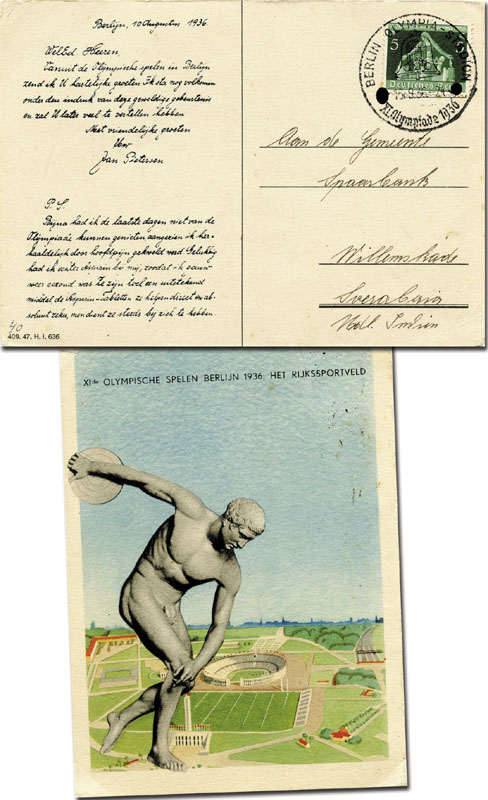 Berlijn, 10 Augustus 1936.
WelEd Heeren,
Vanuit de Olympische spelen in Berlijn
zend ik U hartelijke groeten. Ik sta nog volkomen
onder den indruk van deze geweldige gebeurtenis
en zal U later veel te vertellen hebben
Met vriendelijke groeten
Uw
Jan Pietersen
P.S.
Bijna had ik de laatste dagen niet van de
Olympiade kunnen genieten aangezien ik her-
haaldelijk door hoofdpijn gekweld werd. Gelukkig
had ik echter Aspirin bij mij, zoodat ik gauw
weer gezond was. Ze zijn toch een uitstekend
middel de Aspirin-Tabletten: ze helpen direct en ab-
soluut zeker, men dient ze steeds bij zich te hebben.
40
409. 47. H. I. 636
BERLIN OLYMPIA-STADION
XI. Olympiade 1936
5
Deutsches Reich
Aan de Gemeente
Spaarbank
Willemskade
Soerabaia
Ned. Indien
XIde OLYMPISCHE SPELEN BERLIJN 1936: HET RIJKSSPORTVELD